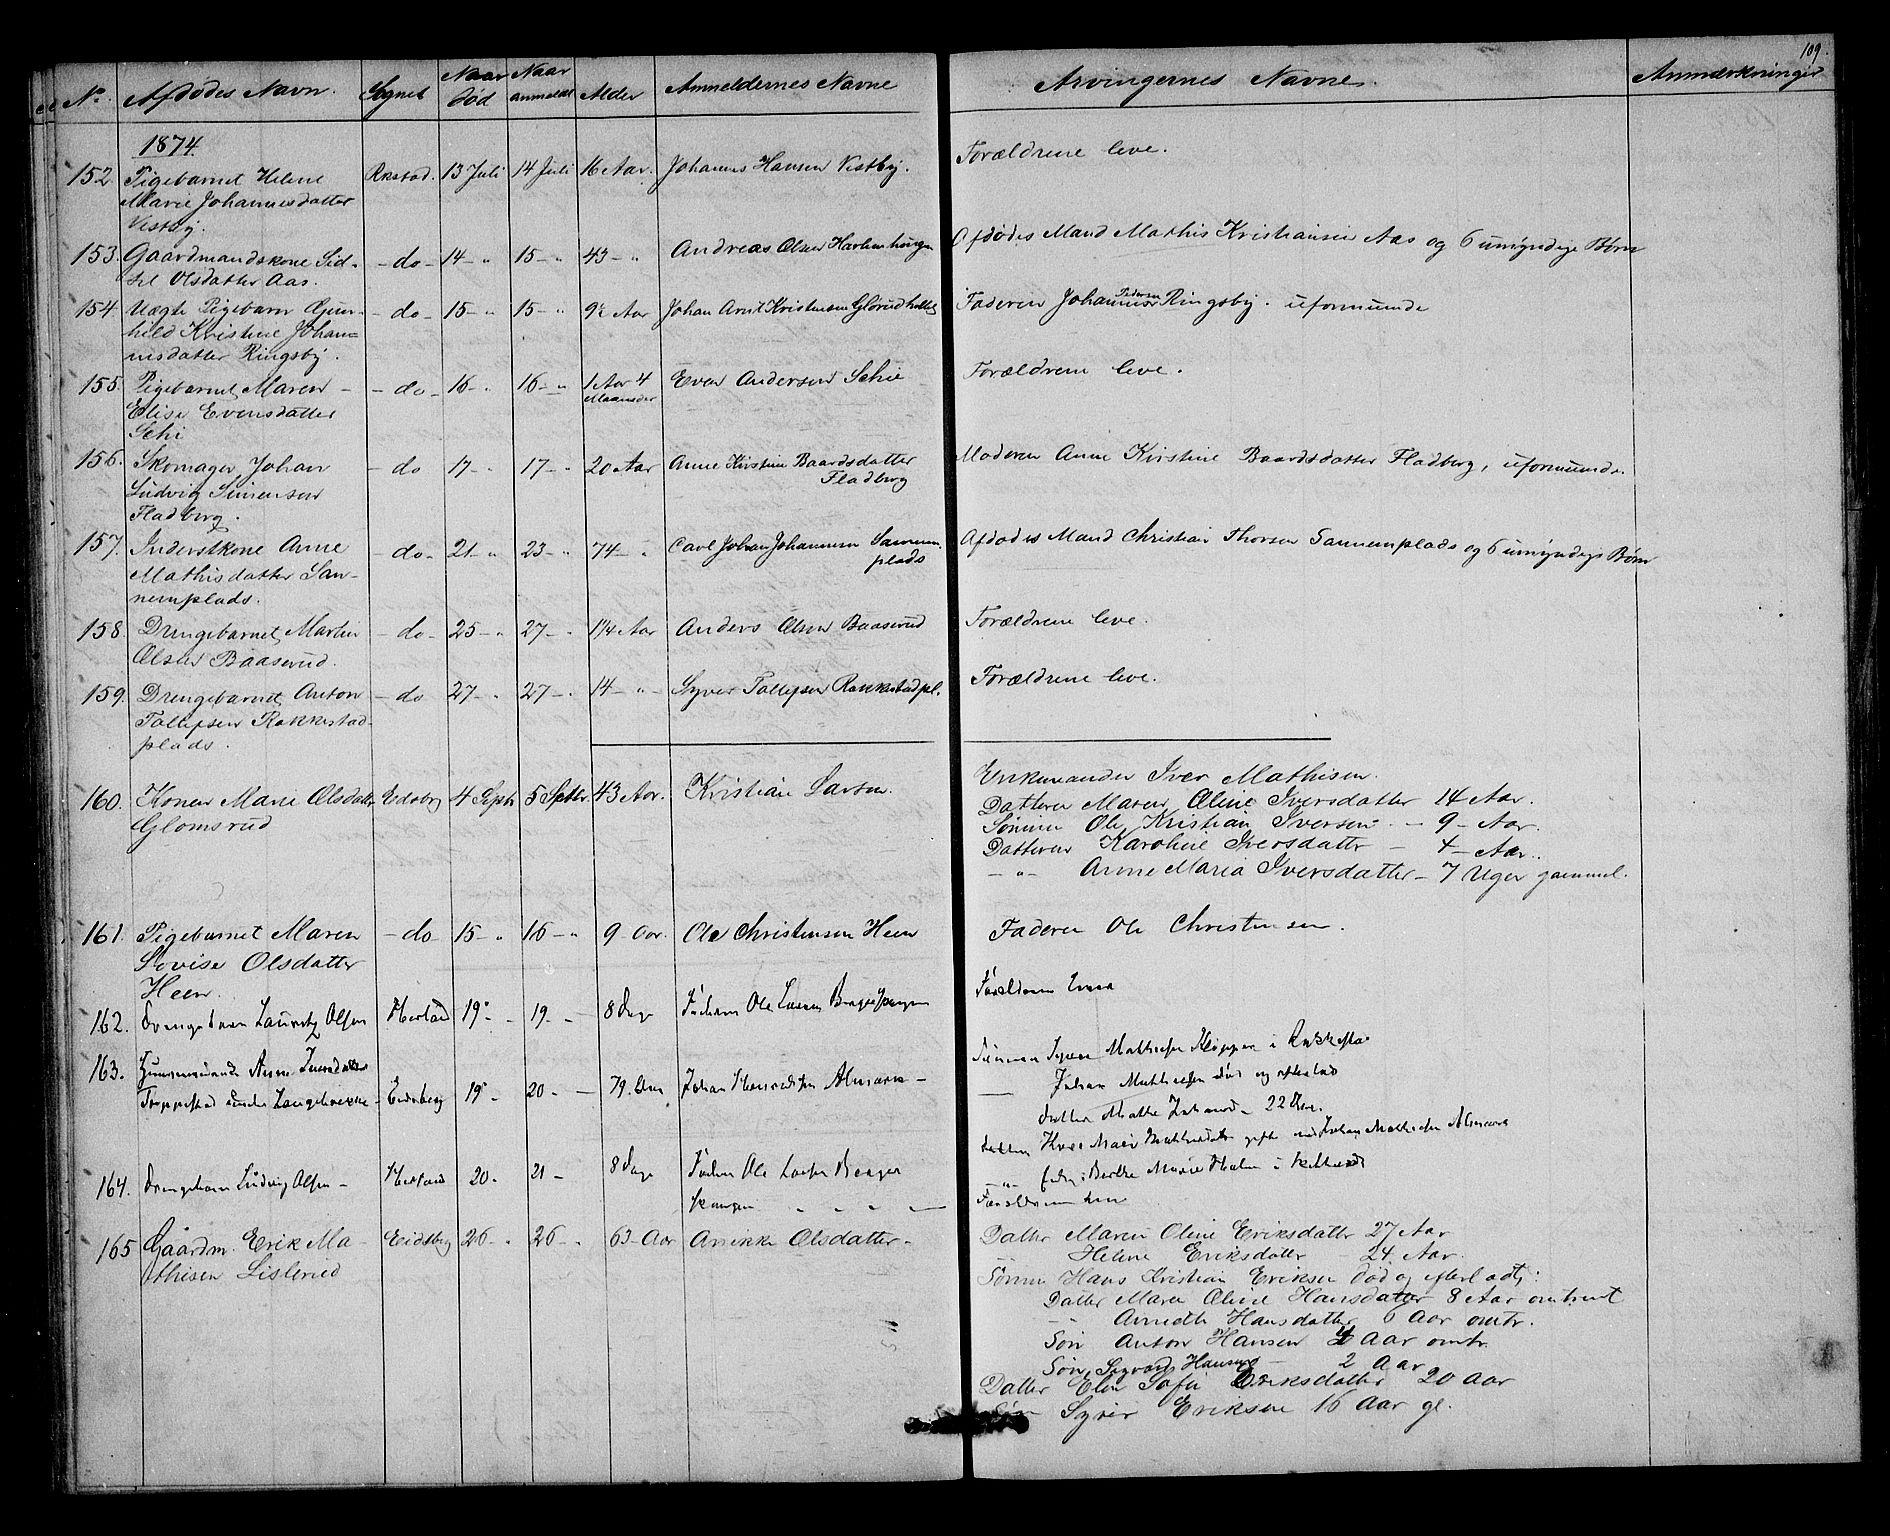 109.
No. Afdødes Navn. Sognet Naar død Naar anmeldt Alder Anmeldernes Navne Arvingernes Navne. Anmærkninger
1874.
152. Pigebarnet Helene Rkstad. 13 Juli 14 Juli 16 Aar. Johannes Hansen Vestby. Forældrene leve.
Marie Johannesdatter
Vestby.
153. Gaardmandskone Sid- - do - 14 - " 15 - " 43 - " Andreas Olsen Afdødes Mand Mathis Kristiansen Aas og 6 umyndige Børn
sel Olsdatter Aas.
154 Uægte Pigebarn Gun- - do - 15 - " 15 - " 9½ Aar Johan Arnt Kristensen Faderen Johannes Pedersen Ringsby. uformuende
hild Kristine Johan-
nesdatter Ringsby.
155. Pigebarnet Maren - - do - 16 - " 16 - " 1 Aar 4 Maaneder Even Andersen Schie Forældrene leve.
Elise Evensdatter
Schi
156. Skomager Johan - do 17 - " 17 - " 20 Aar Anne Kirstine Baardsdatter Moderen Anne Kirstine Baardsdatter Fladberg, uformuende.
Ludvig Simensen Fladberg
Fladberg.
157. Inderstkone Anne - do - 21 - " 23 - " 74 - " Carl Johan Johannesen Sannem- Afdødes Mand Christian Thorsen Sannemplads og 6 umyndige Børn
Mathisdatter San- plads
nemplads.
158. Drengebarnet Martin - do - 25 - " 27 - " 1¼ Aar Anders Olsen Baaserud Forældrene leve.
Olsen Baaserud.
159. Drengebarnet Anton - do 27 - " 27 - " 14 - " - Syver Tollefsen Rakkestadpl. Forældrene leve.
Tollefsen Rakkestad-
plads.
160. Konen Marie Olsdatter Eidsbg 4 Septr 5 Septbr. 43 Aar. Kristian Larsen. Enkemanden Iver Mathisen.
Glomsrud Datteren Maren Oline Iversdatter 14 Aar.
Sønnen Ole Kristian Iversen - 9 - Aar.
Datteren Karoline Iversdatter - 4 - Aar.
- " - Anne Maria Iversdatter - 7 Uger gammel.
161. Pigebarnet Maren - do - 15 - " 16 - " 9 - Aar. Ole Christensen Heen Faderen Ole Christensen.
Lovise Olsdatter
Heen.
162. Drengebarn Lauritz Olsen Herlad 19 - 19 - 8 Dage Faderen Ole Larsen Forældrene leve
163. Anne 19 - 20 - 79. Aar Johan Sønnen Syver Mathisen i Rakkestad
Eidsberg Johan Mathisen død og efterlad
Datter Mathe 22 Aar.
Datter gift med Johan Mathisen
- " - Berthe Marie
164. Drengebarn Ludvig Olsen - Herlad 20 - 21 - 8 Dage Faderen Ole Larsen Forældrene leve
165 Gaardm. Erik Ma- Eidsbg 26 - " 26 - " 63 - Aar Anikke Olsdatter - Datter Maren Oline Eriksdatter 27 Aar
thisen Lislerud Helene Eriksdatter - 24 Aar.
Sønnen Hans Kristian Eriksen død og efterladt:
Datter Maren Oline Hansdatter 8 Aar omtrent
- " - Annette Hansdatter 6 Aar omtr.
Søn Anton Hansen 4 Aar omtr.
Søn Sigvard Hansen - 2 Aar
Datter Elen Sofie Eriksdatter 20 Aar
Søn Syver Eriksen 16 Aar gl.